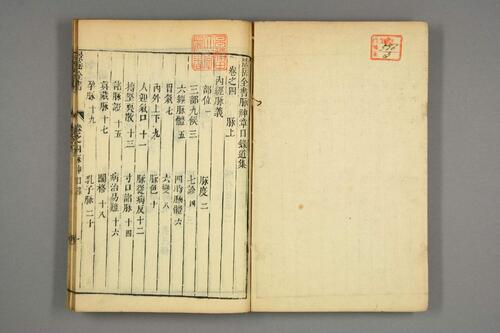 景岳全書脈神章目錄道集
卷之四　脈上
內經脈義
部位一　脈度二
三部九候三　七診四
六經脈體五　四時脈體六
胃氣七　六變八
內外上下九　脈色十
人迎氣口十一　脈從病反十二
搏堅耎散十三　寸口諸脈十四
諸脈證十五　病治易難十六
真藏脈十七　關格十八
孕脈十九　乳子脈二十